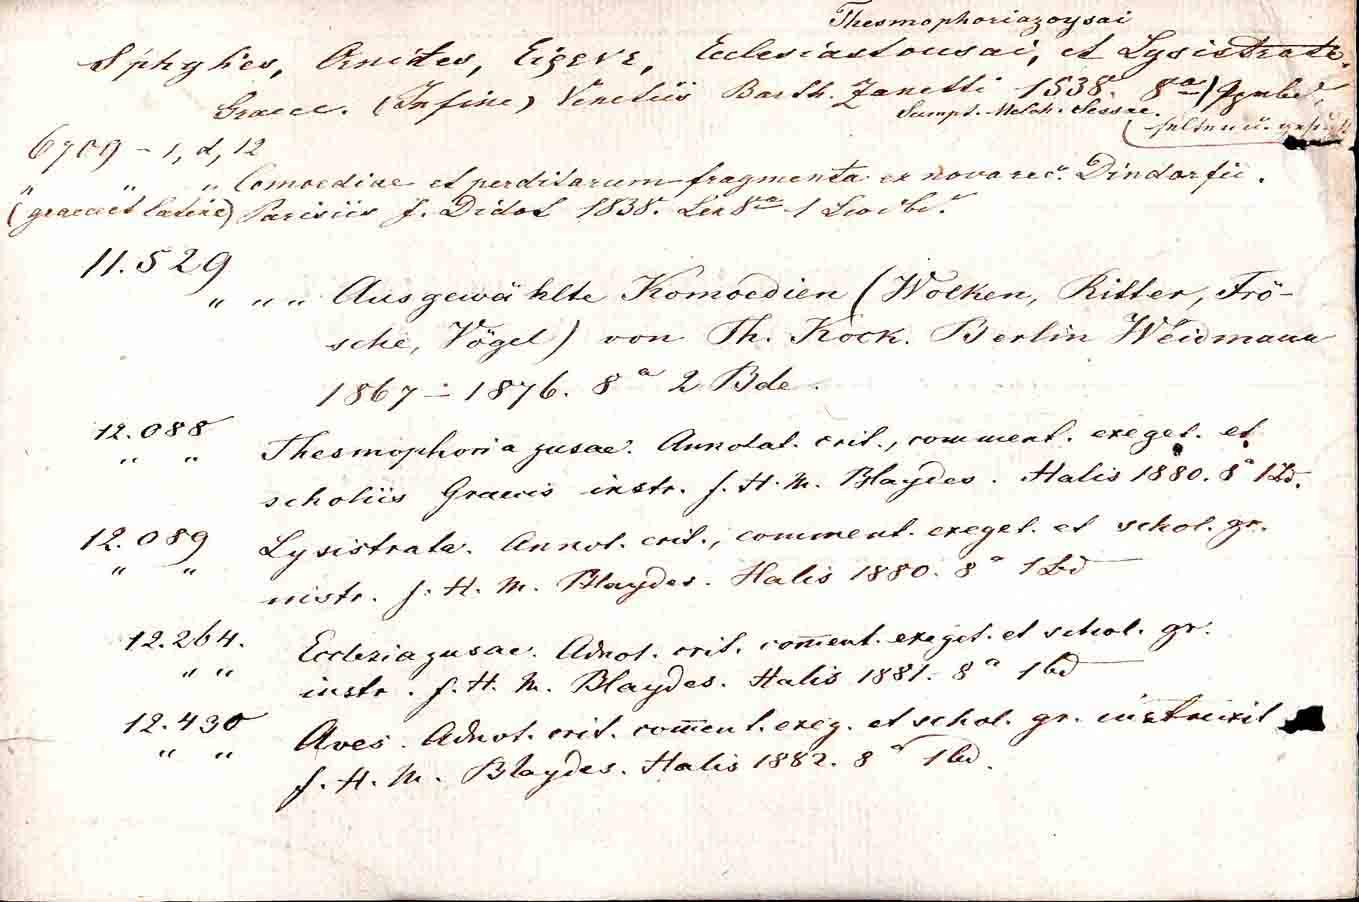 Thesmophoriazoysai
Sphykes, Ornites, Eigeve, Ecclesiastousai, et Lysistrate.
Graece. (In fine) Venetiis Barth. Zanetti 1538. 8°)
Sumpt. Melch. Sessae.
selten u.
6709 - 1, d, 12
" " " Comoediae et perditarum fragmenta ex nova rec. Dindorfii.
(graece et latine) Parisiis f. Didot 1838. Lex 8° 1
11.529
" " " Ausgewählte Komoedien (Wolken, Ritter, Frö-
sche, Vögel) von Th. Kock. Berlin Weidmann
1867 - 1876. 8° 2 Bde.
12.088
" " Thesmophoriazusae. Annotat. crit., comment. exeget. et
scholiis Graecis instr. f. H. M. Blaydes. Halis 1880. 8° 1 Bd.
12.089 Lysistrata. Annot. crit., comment. exeget. et schol. gr.
" " instr. f. H. M. Blaydes. Halis 1880. 8° 1 Bd
12.264. Eccleziazusae. Adnot. crit. com̅ent. exeget. et schol. gr.
" " instr. f. H. M. Blaydes. Halis 1881. 8° 1 bd
12.430 Aves. Adnot. crit. com̅ent. exeg. et schol. gr. instruxit
" " f. H. M. Blaydes. Halis 1882. 8° 1 bd.